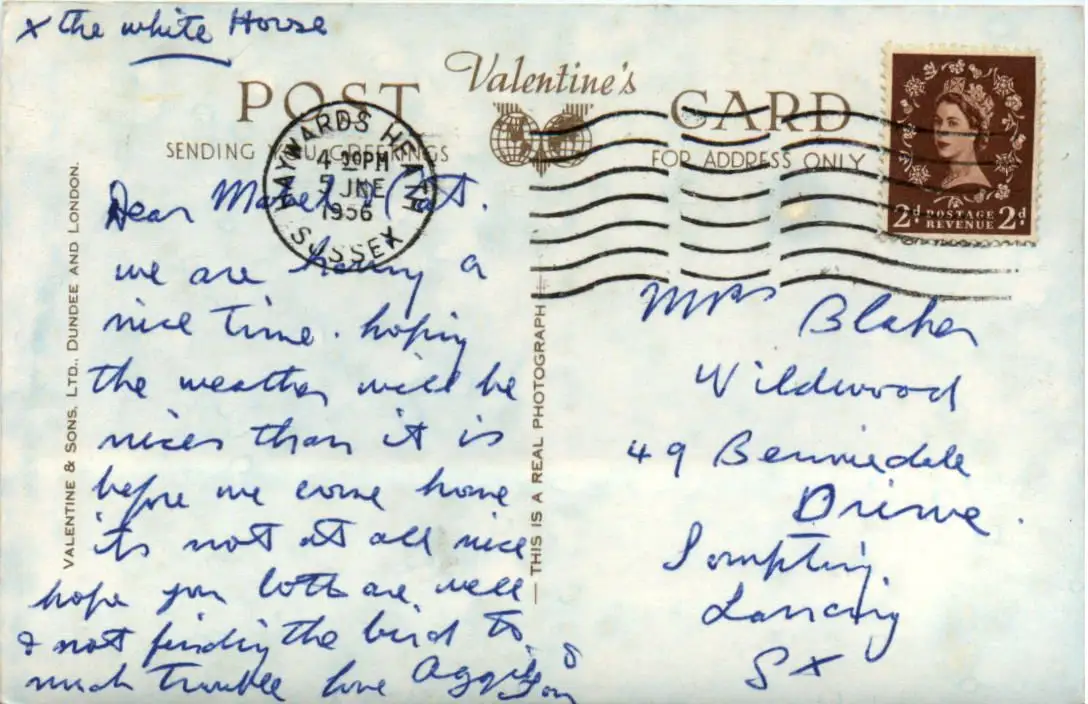 x the white House
Valentine's
POST CARD
SENDING YOU GREETINGS
FOR ADDRESS ONLY
HAYWARDS HEATH
4 30PM
5 JNE
1956
SUSSEX
2d POSTAGE REVENUE 2d
VALENTINE & SONS, LTD., DUNDEE AND LONDON.
THIS IS A REAL PHOTOGRAPH
Dear Mabel & Pat.
we are having a
nice time. hoping
the weather will be
nicer than it is
before we come home
its not at all nice
hope you both are well
& not finding the bird to
much trouble love Aggie &
Mrs Blaker
Wildwood
49
Drive.
Sompting.
Lancing
SX